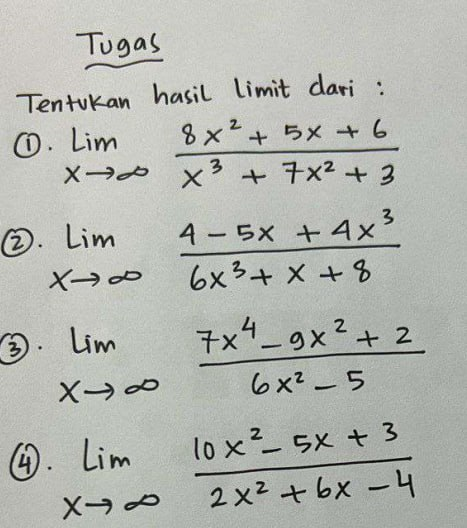 Tugas
Tentukan hasil limit dari :
①. Lim x→∞ (8x² + 5x + 6) / (x³ + 7x² + 3)
②. Lim x→∞ (4 - 5x + 4x³) / (6x³ + x + 8)
③. Lim x→∞ (7x⁴ - 9x² + 2) / (6x² - 5)
④. Lim x→∞ (10x² - 5x + 3) / (2x² + 6x - 4)